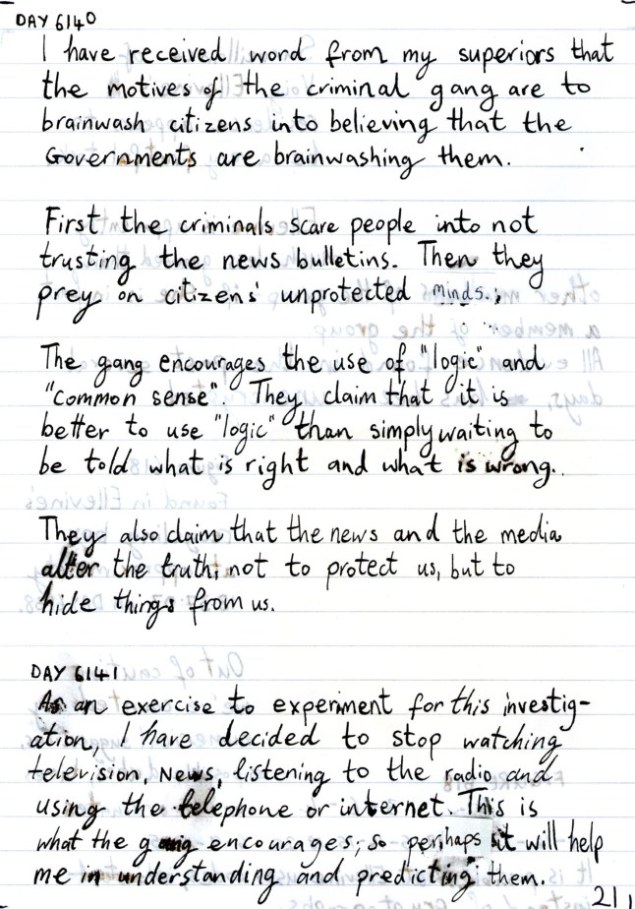 DAY 6140
I have received word from my superiors that
the motives of the criminal gang are to
brainwash citizens into believing that the
Governments are brainwashing them.
First the criminals scare people into not
trusting the news bulletins. Then they
prey on citizens' unprotected minds.
The gang encourages the use of "logic" and
"common sense" They claim that it is
better to use "logic" than simply waiting to
be told what is right and what is wrong.
They also claim that the news and the media
alter the truth, not to protect us, but to
hide things from us.
DAY 6141
As an exercise to experiment for this investig-
ation, I have decided to stop watching
television, News, listening to the radio and
using the telephone or internet. This is
what the gang encourages, so perihaps it will help
me in understanding and predicting them.
211